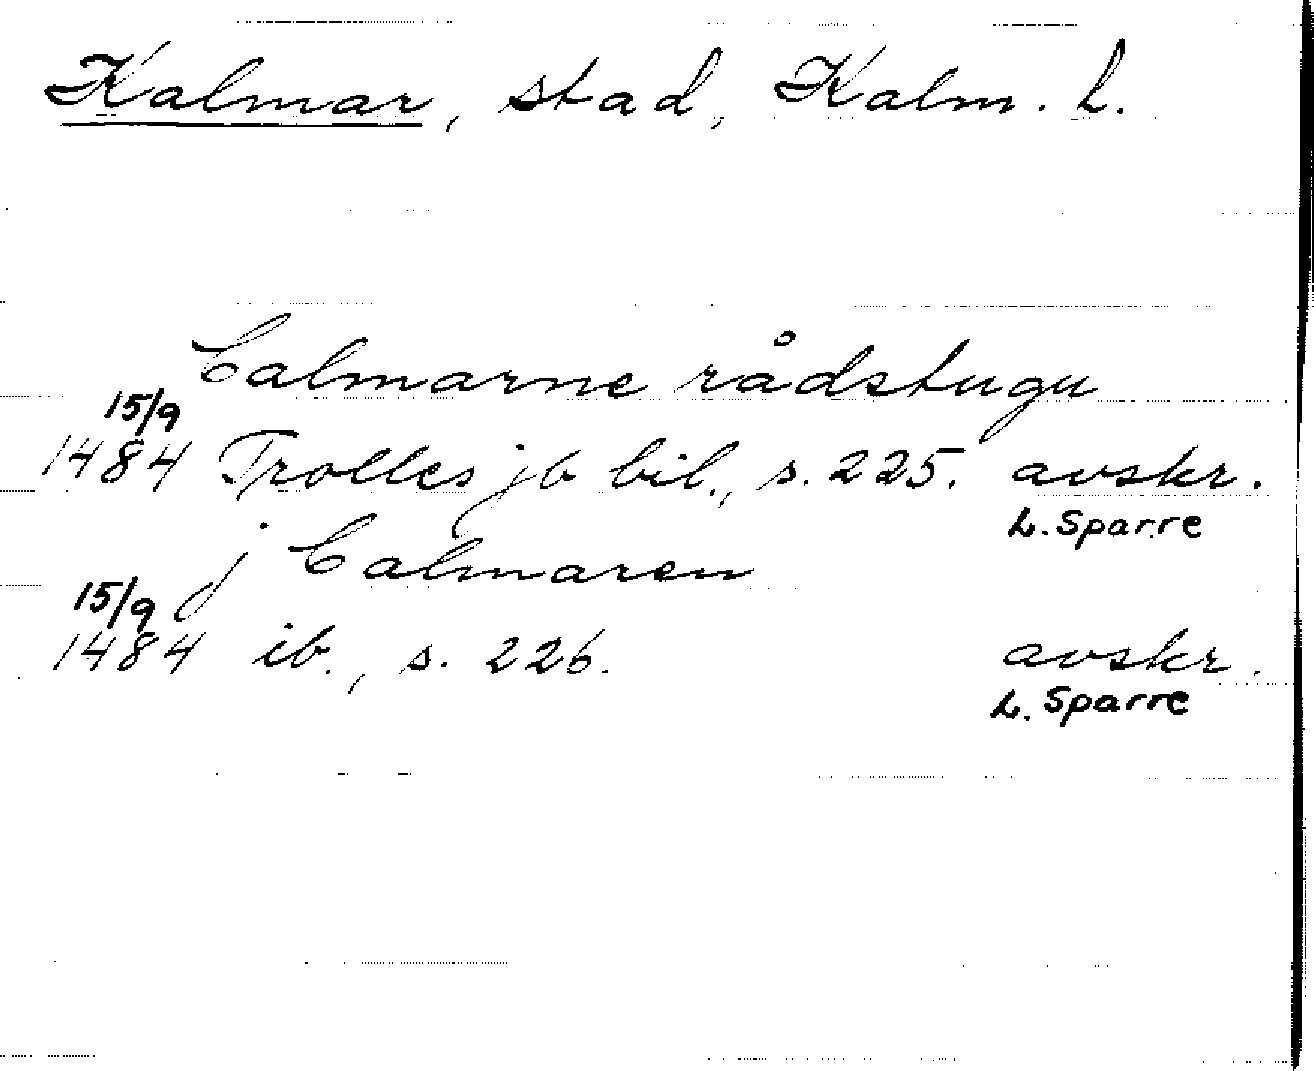 Kalmar, stad, Kalm. L.
Calmarne rådstugu
15/9
1484 Trolles jb bil., s. 225. avskr.
L. Sparre
j Calmaren
15/9
1484 ib., s. 226. avskr.
L. Sparre